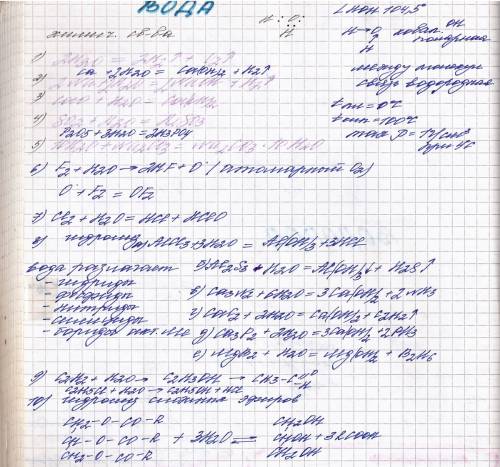 ВОДА
H : O :
H
∠HOH 104,5
химич. св-ва
H–O ковал. полярная
H
между молекул
связь водородная
1) 2H2O = 2H2↑ + O2↑
Ca + 2H2O = Ca(OH)2 + H2↑
2)
3) CaO + H2O = Ca(OH)2
t пл = 0°C
t кип = 100°C
4) SO3 + H2O = H2SO4
P2O5 + 3H2O = 2H3PO4
5) · 10 H2O
6) F2 + H2O → 2HF + O· (атомарный O2)
O· + F2 = OF2
7) Cl2 + H2O = HCl + HClO
8) гидролиз а) AlCl3 + 3H2O = Al(OH)3 + 3HCl
вода разлагает б) Al2S3 + H2O = Al(OH)3↓ + H2S↑
- гидриды
в) Ca3N2 + 6H2O = 3Ca(OH)2 + 2NH3
- фосфиды
- нитриды г) CaC2 + 2H2O = Ca(OH)2 + C2H2↑
- силициды д) Ca3P2 + H2O = 3Ca(OH)2 + 2PH3
- бориды акт. Ме е) MgB2 + H2O = Mg(OH)2 + B2H6
9) C2H2 + H2O → C2H3OH → CH3–C=O
–H
C2H5Cl + H2O → C2H5OH + HCl
10) гидролиз сложных эфиров
CH2–O–CO–R CH2OH
CH–O–CO–R + 3H2O ⇌ CHOH + 3RCOOH
CH2–O–CO–R CH2OH